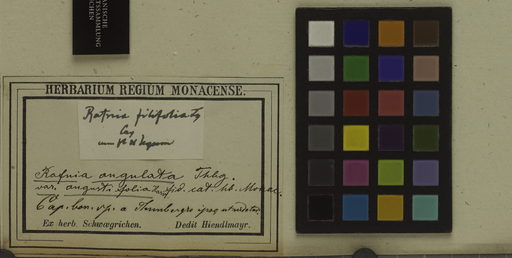 ANISCHE
TSSAMMLUNG
CHEN
HERBARIUM REGIUM MONACENSE.
Rafnia filifolia Th
Rafnia angulata Thbg.
var. angustifolia fid. cat. hb. Monac.
Cap. bon. sp. a Thunbergio ipso
Ex herb. Schwægrichen. Dedit Hiendlmayr.